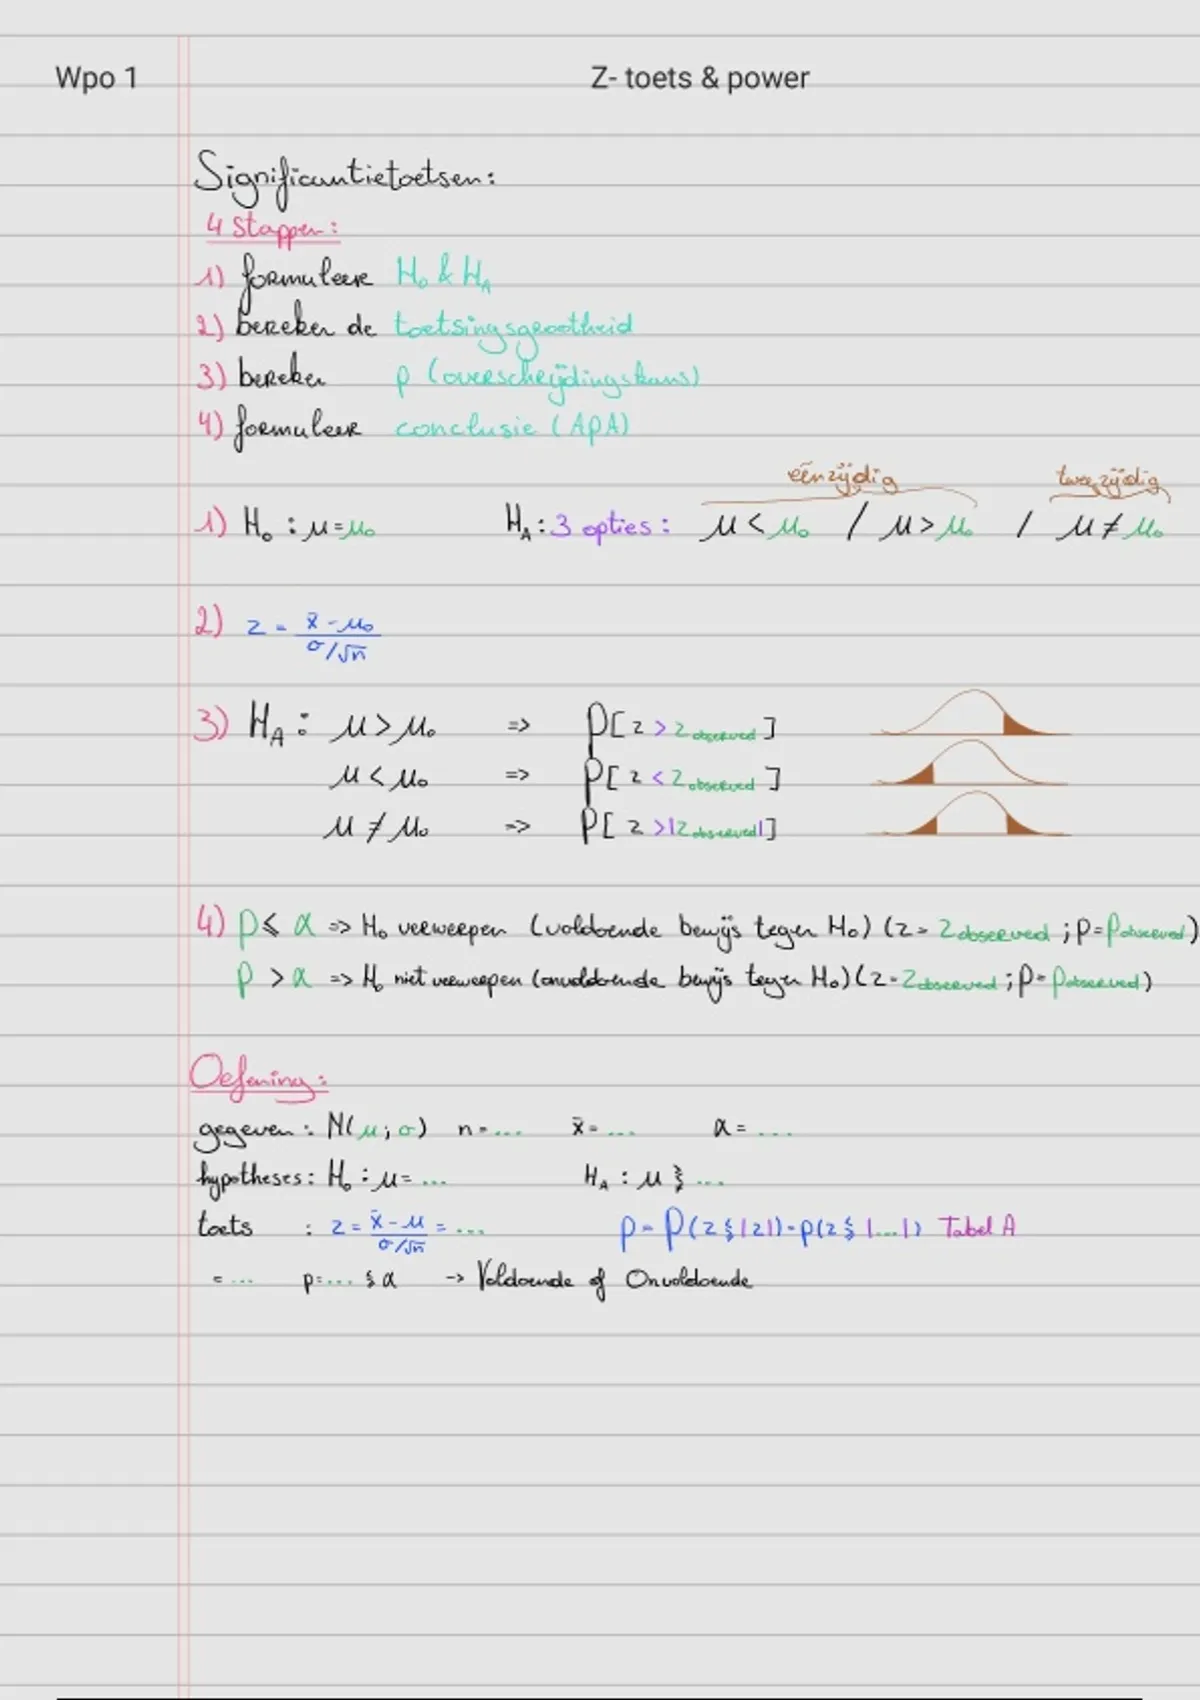 Wpo 1
Z- toets & power
Significantietoetsen:
4 Stappen:
1) formuleer H₀ & H_A
2) bereken de toetsingsgrootheid
3) bereken p (overschrijdingskans)
4) formuleer conclusie (APA)
éénzijdig tweezijdig
1) H₀ : μ = μ₀ H_A : 3 opties : μ < μ₀ / μ > μ₀ / μ ≠ μ₀
2) z = (x̄ - μ₀) / (σ/√n)
3) H_A : μ > μ₀ => P[z > z observed]
μ < μ₀ => P[z < z observed]
μ ≠ μ₀ => P[z > |z observed|]
4) p ≤ α => H₀ verwerpen (voldoende bewijs tegen H₀) (z = z observed ; p = p observed)
p > α => H₀ niet verwerpen (onvoldoende bewijs tegen H₀) (z = z observed ; p = p observed)
Oefening:
gegeven : N(μ ; σ) n = ... x̄ = ... α = ...
hypotheses : H₀ : μ = ... H_A : μ ≶ ...
toets : z = (x̄ - μ) / (σ/√n) = ... p = P(z ≶ |z|) = p(z ≶ |...|) Tabel A
= ... p = ... ≶ α -> Voldoende of Onvoldoende